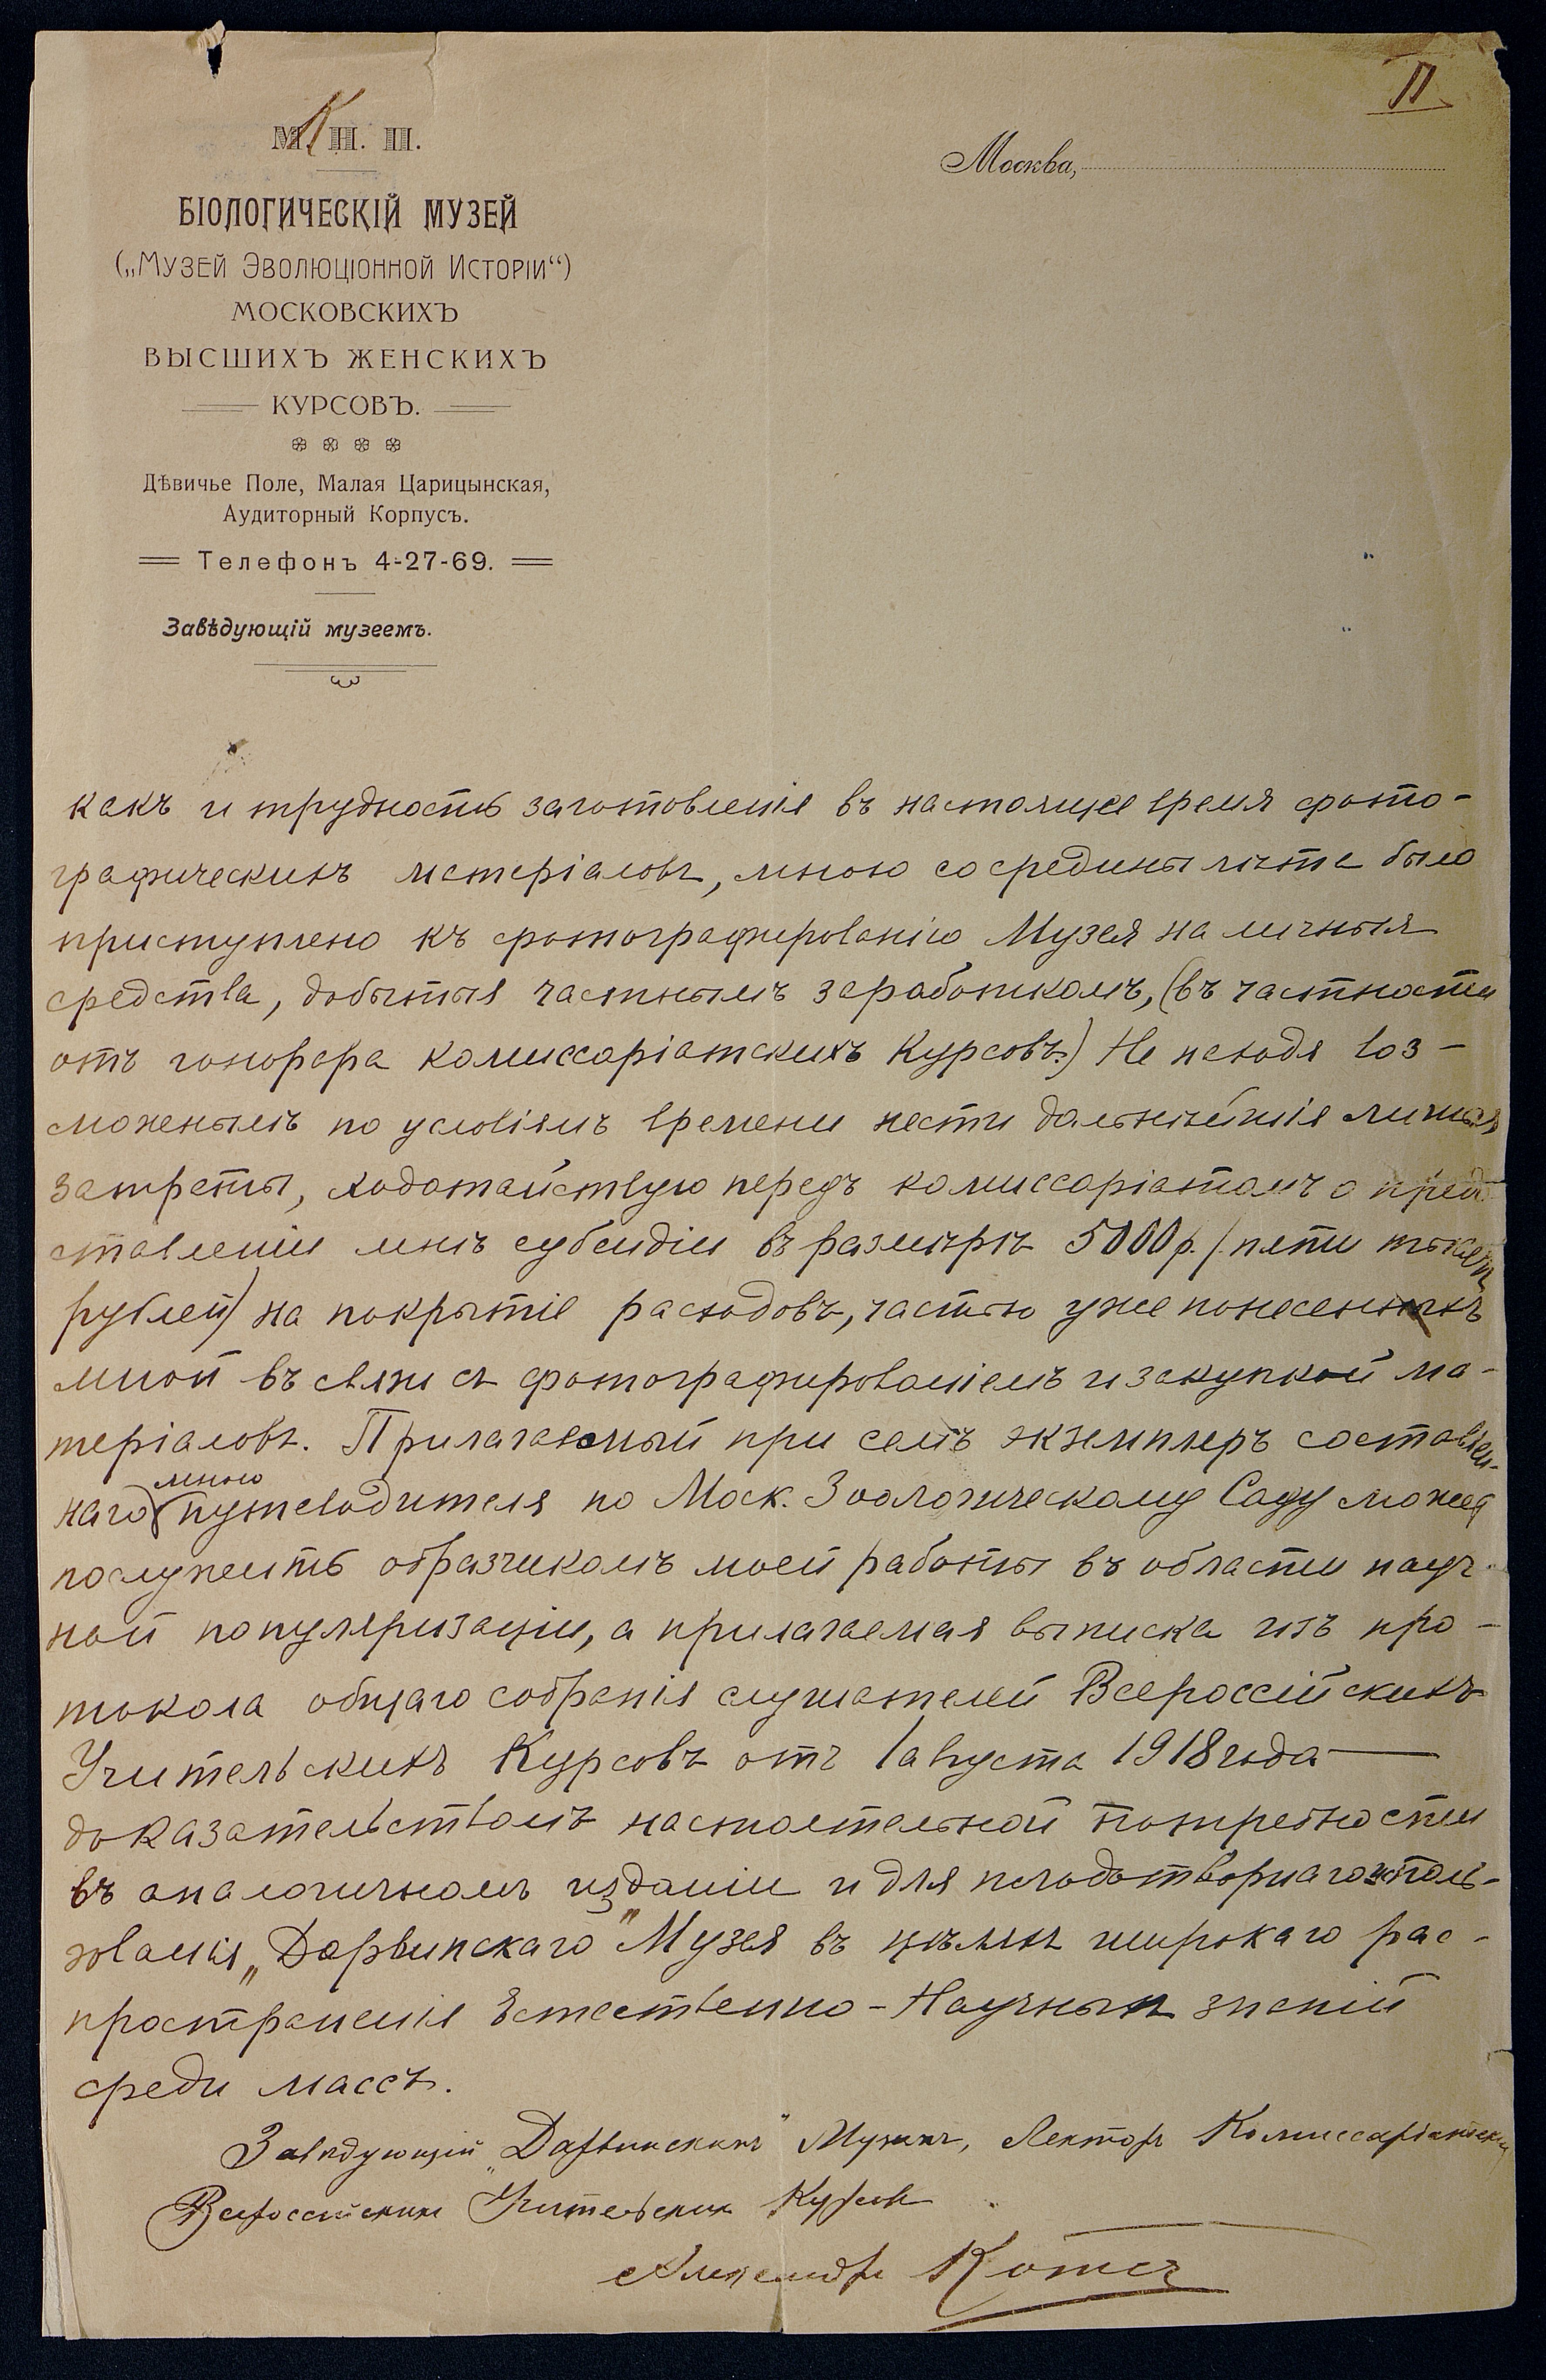 II
М. К. Н. П.
Москва,
БІОЛОГИЧЕСКІЙ МУЗЕЙ
(„Музей Эволюціонной Исторіи“)
МОСКОВСКИХЪ
ВЫСШИХЪ ЖЕНСКИХЪ
КУРСОВЪ.
Дѣвичье Поле, Малая Царицынская,
Аудиторный Корпусъ.
Телефонъ 4-27-69.
Завѣдующій музеемъ.
какъ и трудность заготовленія въ настоящее время фото-
графическихъ матеріаловъ, мною со средины лѣта было
приступлено къ фотографированію Музея на личныя
средства, добытыя частнымъ заработкомъ, (въ частности
отъ гонорара комиссаріатскихъ Курсовъ.) Не находя воз-
можнымъ по условіямъ времени нести дальнѣйшія личныя
затраты, ходатайствую передъ комиссаріатомъ о предо
ставленіи мнѣ субсидіи въ размѣрѣ 5000 р. (пяти тысячъ
рублей) на покрытіе расходовъ, частью уже понесенныхъ
мной въ связи съ фотографированіемъ и закупкой ма-
теріаловъ. Прилагаемый при семъ экземпляръ составлен-
наго мною путеводителя по Моск. Зоологическому Саду можетъ
послужить образчикомъ моей работы въ области науч-
ной популяризаціи, а прилагаемая выписка изъ про-
токола общаго собранія слушателей Всероссійскихъ
Учительскихъ Курсовъ отъ 1 августа 1918 года —
доказательствомъ настоятельной потребности
въ аналогичномъ изданіи и для плодотворнаго исполь-
зованія „Дарвинскаго“ Музея въ цѣляхъ широкаго рас-
пространенія Естественно-Научныхъ знаній
среди массъ.
Завѣдующій „Дарвинскимъ“ Музеемъ, Лекторъ Комиссаріатскихъ
Всероссійскихъ Учительскихъ Курсовъ
Александръ Котсъ